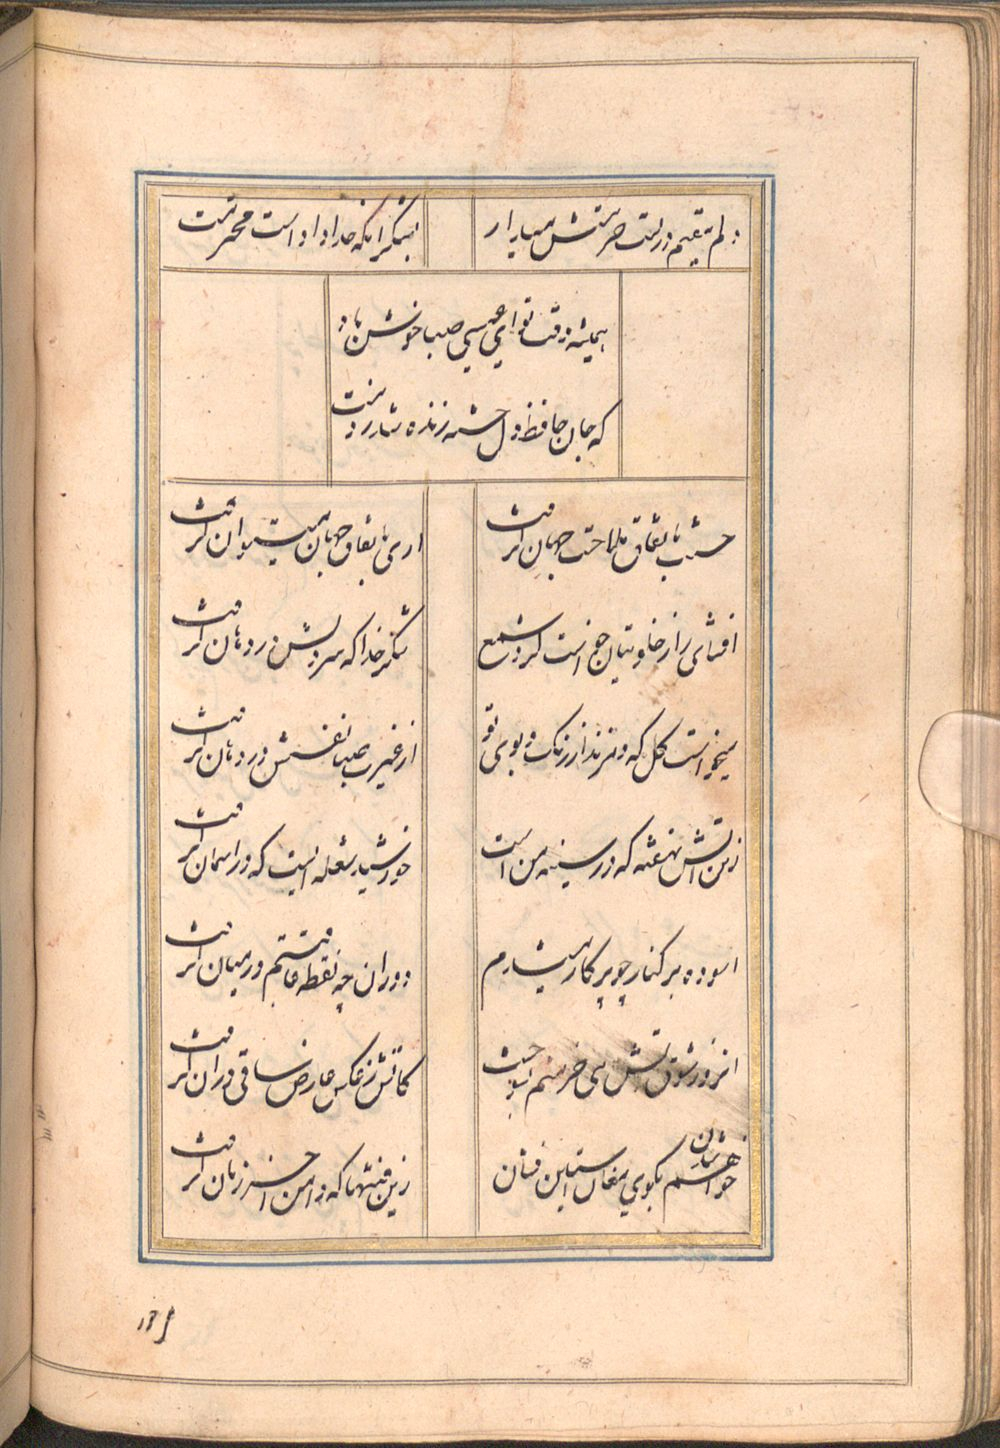 دلم مقیم در تست حرمتش میدار
بشکر آنکه خدا داده است محترمت
همیشه وقت تو ای عیسی صبا خوش باد
که جان حافظ دل خسته زنده شد بدمت
حسنت باتفاق ملاحت جهان گرفت
آری باتفاق جهان میتوان گرفت
افشای راز خلوتیان خواست کرد شمع
شکر خدا که سر دلش در زبان گرفت
میخواست گل که دم زند از رنگ و بوی تو
از غیرت صبا نفسش در دهان گرفت
زین آتش نهفته که در سینه من است
خورشید شعله ایست که در آسمان گرفت
آسوده بر کنار چو پرکار میشدم
دوران چو نقطه عاقبتم در میان گرفت
آنروز شوق آتش می خرمنم بسوخت
کاتش ز عکس عارض ساقی در آن گرفت
خواهم شدن بکوی مغان آستین فشان
زین فتنها که دامن آخر زمان گرفت